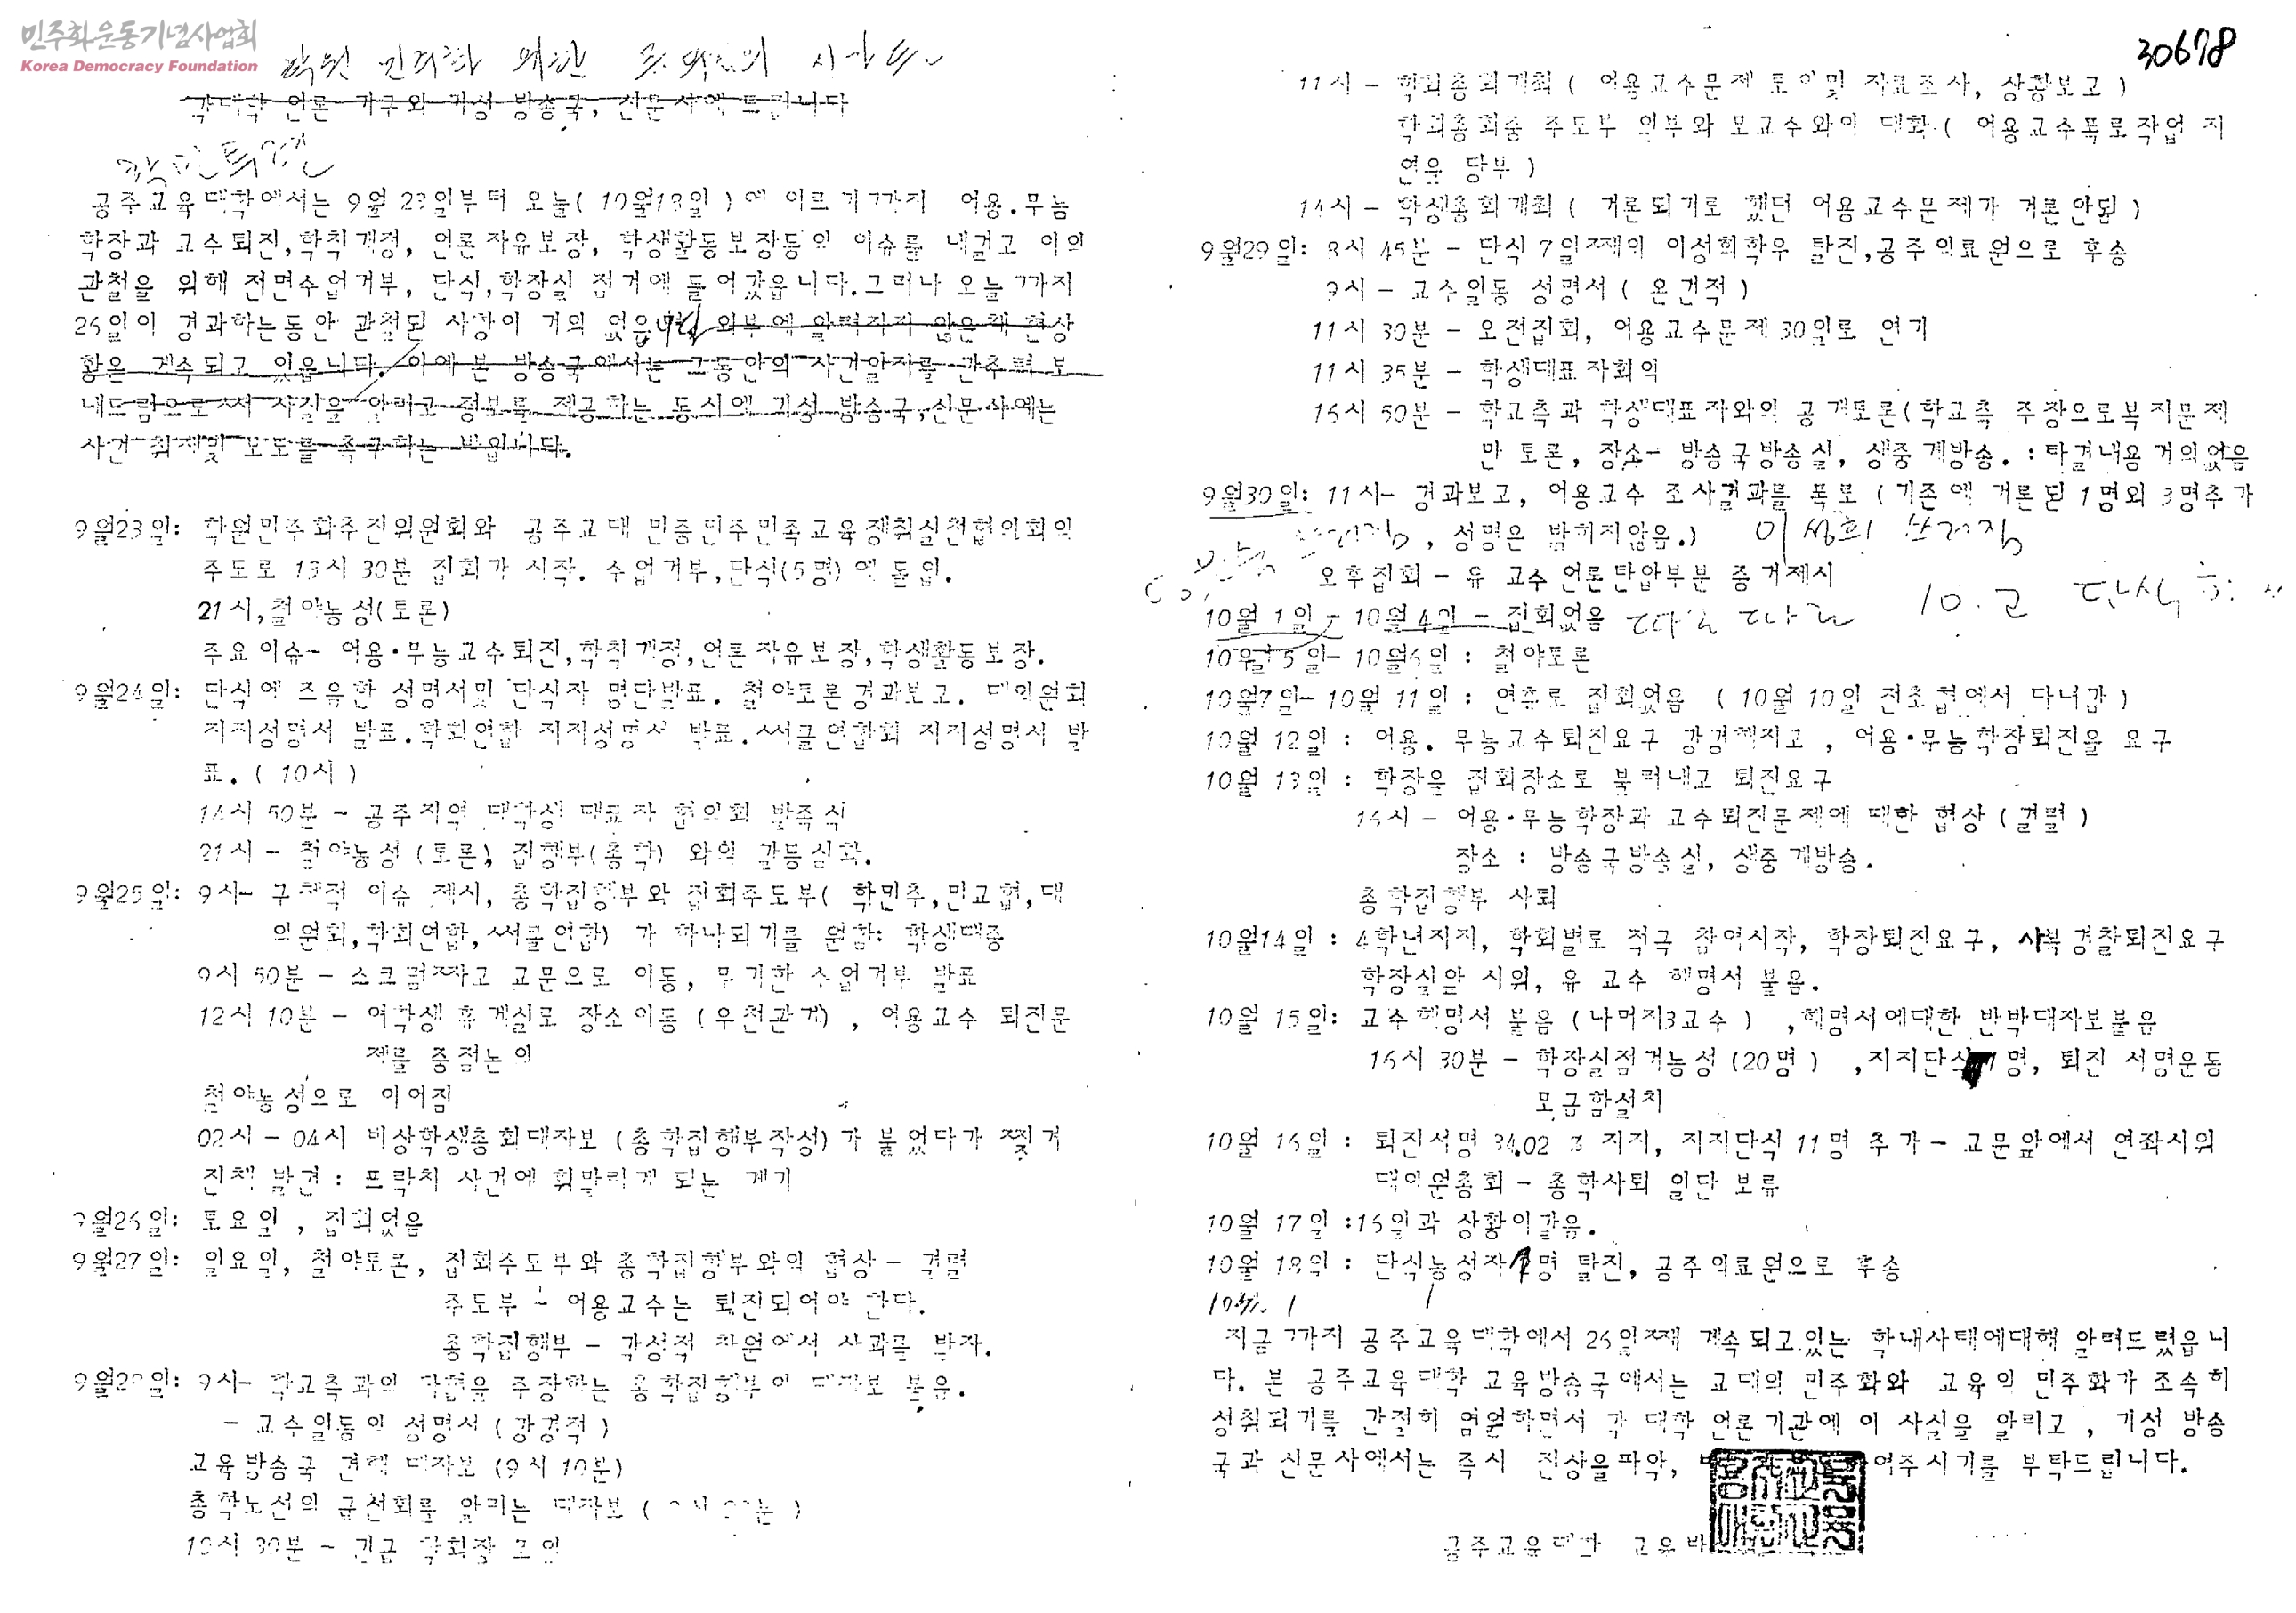 민주화운동기념사업회
Korea Democracy Foundation
학원 민주화 위한
각대학 언론 기구와 기성 방송국, 신문사에 드립니다
공주교육대학에서는 9월 23일부터 오늘( 10월18일 ) 에 이르기까지 어용.무능
학장과 교수퇴진,학칙개정, 언론자유보장, 학생활동보장등의 이슈를 내걸고 이의
관철을 위해 전면수업거부, 단식,학장실 점거에 들어갔읍니다.그러나 오늘까지
26일이 경과하는동안 관철된 사항이 거의 없읍니다 외부에 알려지지 않은채 현상
황은 계속되고 있읍니다. 이에 본 방송국에서는 그동안의 사건일지를 간추려 보
내드림으로써 사실을 알리고 정보를 제공하는 동시에 기성 방송국,신문사에는
사건 취재및 보도를 촉구하는 바입니다.
9월23일: 학원민주화추진위원회와 공주교대 민중민주민족교육쟁취실천협의회의
주도로 13시 30분 집회가 시작. 수업거부,단식(5명) 에 돌입.
21시,철야농성(토론)
주요이슈- 어용·무능교수퇴진,학칙개정,언론자유보장,학생활동보장.
9월24일: 단식에 즈음한 성명서및 단식자 명단발표. 철야토론경과보고. 대의원회
지지성명서 발표.학회연합 지지성명서 발표.써클연합회 지지성명서 발
표. ( 10시 )
14시 50분 - 공주지역 대학생 대표자 협의회 발족식
21시 - 철야농성 (토론), 집행부(총학) 와의 갈등심화.
9월25일: 9시- 구체적 이슈 제시, 총학집행부와 집회주도부( 학민추,민교협,대
의원회,학회연합,써클연합) 가 하나되기를 원함: 학생대중
9시 50분 - 스크럼짜고 교문으로 이동, 무기한 수업거부 발표
12시 10분 - 여학생 휴게실로 장소이동 (우천관계) , 어용교수 퇴진문
제를 중점논의
철야농성으로 이어짐
02시 - 04시 비상학생총회대자보 (총학집행부작성) 가 붙었다가 찢겨
진채 발견 : 프락치 사건에 휘말리게 되는 계기
9월26일: 토요일 , 집회없음
9월27일: 일요일, 철야토론, 집회주도부와 총학집행부와의 협상 - 결렬
주도부 - 어용교수는 퇴진되어야 한다.
총학집행부 - 각성적 차원에서 사과를 받자.
9월28일: 9시- 학교측과의 타협을 주장하는 총학집행부의 대자보 붙음.
- 교수일동의 성명서 ( 강경적 )
교육방송국 견해 대자보 (9시 10분)
총학노선의 급선회를 알리는 대자보 (
10시 30분 - 긴급 학회장 모임
30678
11시 - 학회총회개최 ( 어용교수문제 토의및 자료조사, 상황보고 )
학회총회중 주도부 일부와 모교수와의 대화 ( 어용교수폭로작업 지
연을 당부 )
14시 - 학생총회개최 ( 거론되기로 했던 어용교수문제가 거론안됨 )
9월29일: 8시 45분 - 단식 7일째의 이성희학우 탈진,공주의료원으로 후송
9시 - 교수일동 성명서 ( 온건적 )
11시 30분 - 오전집회, 어용교수문제 30일로 연기
11시 35분 - 학생대표자회의
16시 50분 - 학교측과 학생대표자와의 공개토론(학교측 주장으로복지문제
만 토론, 장소- 방송국방송실, 생중계방송. : 타결내용거의없음
9월30일: 11시- 경과보고, 어용교수 조사결과를 폭로 (기존에 거론된 1명외 3명추가
, 성명은 밝히지않음.) 이성희
오후집회 - 유 교수언론탄압부분 증거제시
10월 1일 - 10월 4일 - 집회없음 10. 2 단식
10월 5일- 10월6일 : 철야토론
10월7일- 10월 11일 : 연휴로 집회없음 ( 10월 10일 전초협에서 다녀감 )
10월 12일 : 어용. 무능교수퇴진요구 강경해지고 , 어용·무능학장퇴진을 요구
10월 13일 : 학장을 집회장소로 불러내고 퇴진요구
16시 - 어용·무능학장과 교수퇴진문제에 대한 협상 ( 결렬 )
장소 : 방송국방송실, 생중계방송.
총학집행부 사퇴
10월14일 : 4학년지지, 학회별로 적극 참여시작, 학장퇴진요구, 사복경찰퇴진요구
학장실앞 시위, 유 교수 해명서 붙음.
10월 15일: 교수해명서 붙음 (나머지3교수 ) ,해명서에대한 반박대자보붙음
16시 30분 - 학장실점거농성 (20명 ) ,지지단식 명, 퇴진 서명운동
모금함설치
10월 16일 : 퇴진서명 지지, 지지단식 11명 추가 - 교문앞에서 연좌시위
대의원총회 - 총학사퇴 일단 보류
10월 17일 :16일과 상황이같음.
10월 18일 : 단식농성자1명 탈진, 공주의료원으로 후송
지금까지 공주교육대학에서 26일째 계속되고있는 학내사태에대해 알려드렸읍니
다. 본 공주교육대학 교육방송국에서는 교대의 민주화와 교육의 민주화가 조속히
성취되기를 간절히 염원하면서 각 대학 언론기관에 이 사실을 알리고 , 기성 방송
국과 신문사에서는 즉시 진상을파악, 여주시기를 부탁드립니다.
공주교육대학 교육방